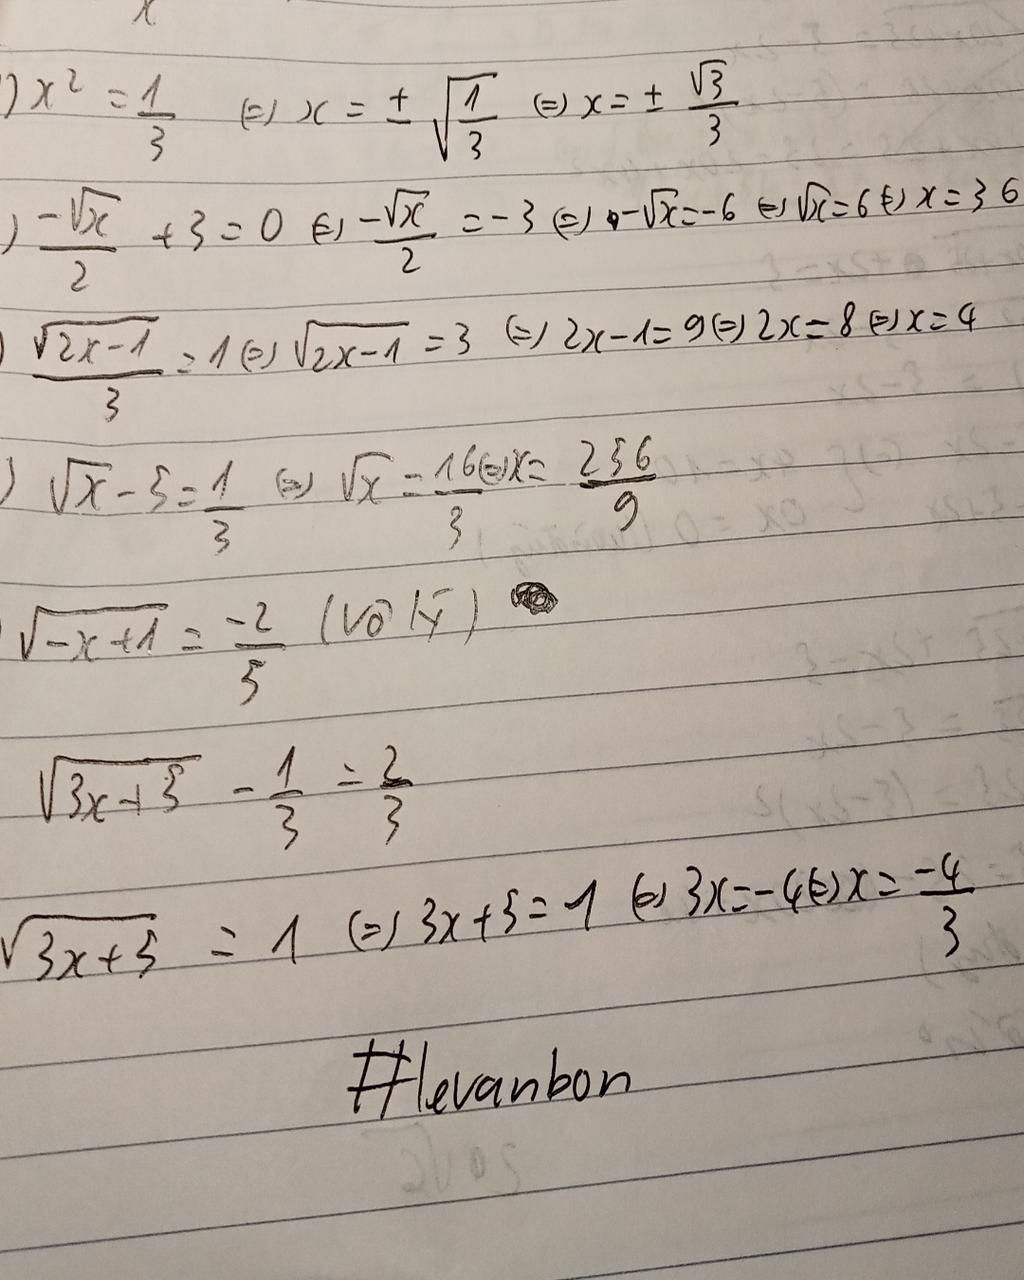 x
) x² = 1/3 (=) x = ± √(1/3) (=) x = ± √3/3
) -√x/2 + 3 = 0 (=) -√x/2 = -3 (=) -√x = -6 (=) √x = 6 (=) x = 36
) √(2x-1)/3 = 1 (=) √(2x-1) = 3 (=) 2x-1 = 9 (=) 2x = 8 (=) x = 4
) √x - 5 = 1/3 (=) √x = 16/3 (=) x = 256/9
) √(-x+1) = -2/5 (vô lý)
√(3x+5) - 1/3 = 2/3
√(3x+5) = 1 (=) 3x+5 = 1 (=) 3x = -4 (=) x = -4/3
#levanbon